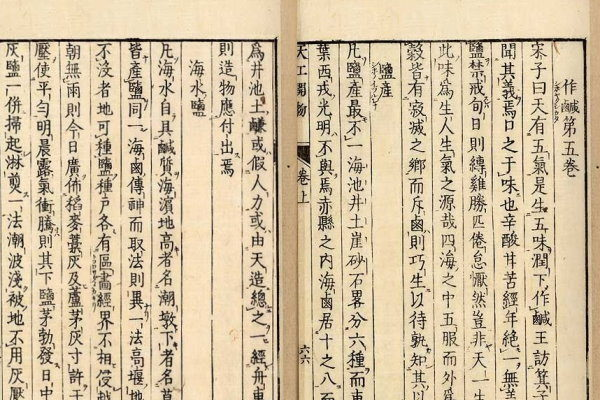 作鹹第五卷
宋子曰天有五氣是生五味潤下作鹹王訪箕
聞其義焉口之于味也辛酸甘苦經年絕一無恙
鹽禁戒旬日則縛雞勝匹倦怠懨然豈非天一生
此味為生人生氣之源哉四海之中五服而外為
穀皆有寂滅之鄉而斥鹵則巧生以待孰知其以
鹽產
凡鹽產最不一海池井土崖砂石畧分六種而東
葉西戎光明不與焉赤縣之內海鹵居十之八而
天工開物 卷上 六六
為井池土鹻或假人力或由天造總之一經舟車
則造物應付出焉
海水鹽
凡海水自具鹹質海濱地高者名潮墩下者名草
皆產鹽同一海鹵傳神而取法則異一法高堰地
不沒者地可種鹽種戶各有區畫經界不相侵越
朝無雨則今日廣佈稻麥藁灰及蘆茅灰寸許于
壓使平勻明晨露氣衝騰則其下鹽茅勃發日中
灰鹽一併掃起淋煎一法潮波淺被地不用灰壓